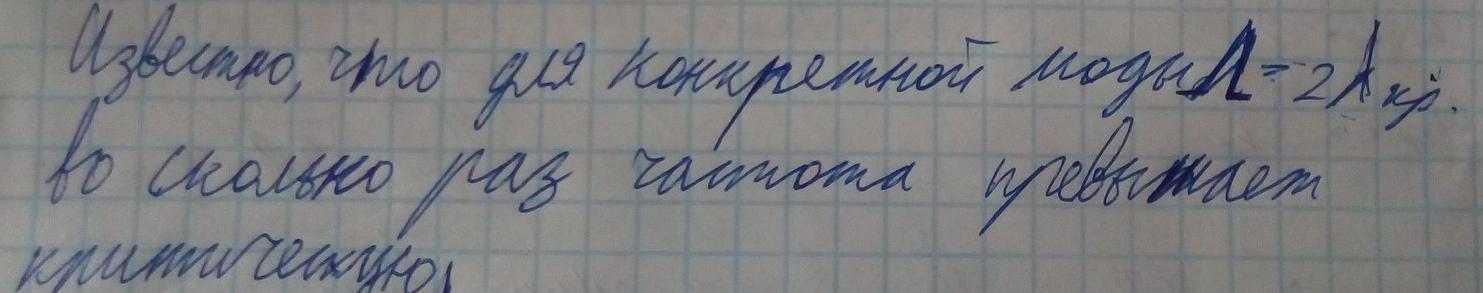 Известно, что для конкретной моды Λ = 2λ кр.
во сколько раз частота превышает
критическую.